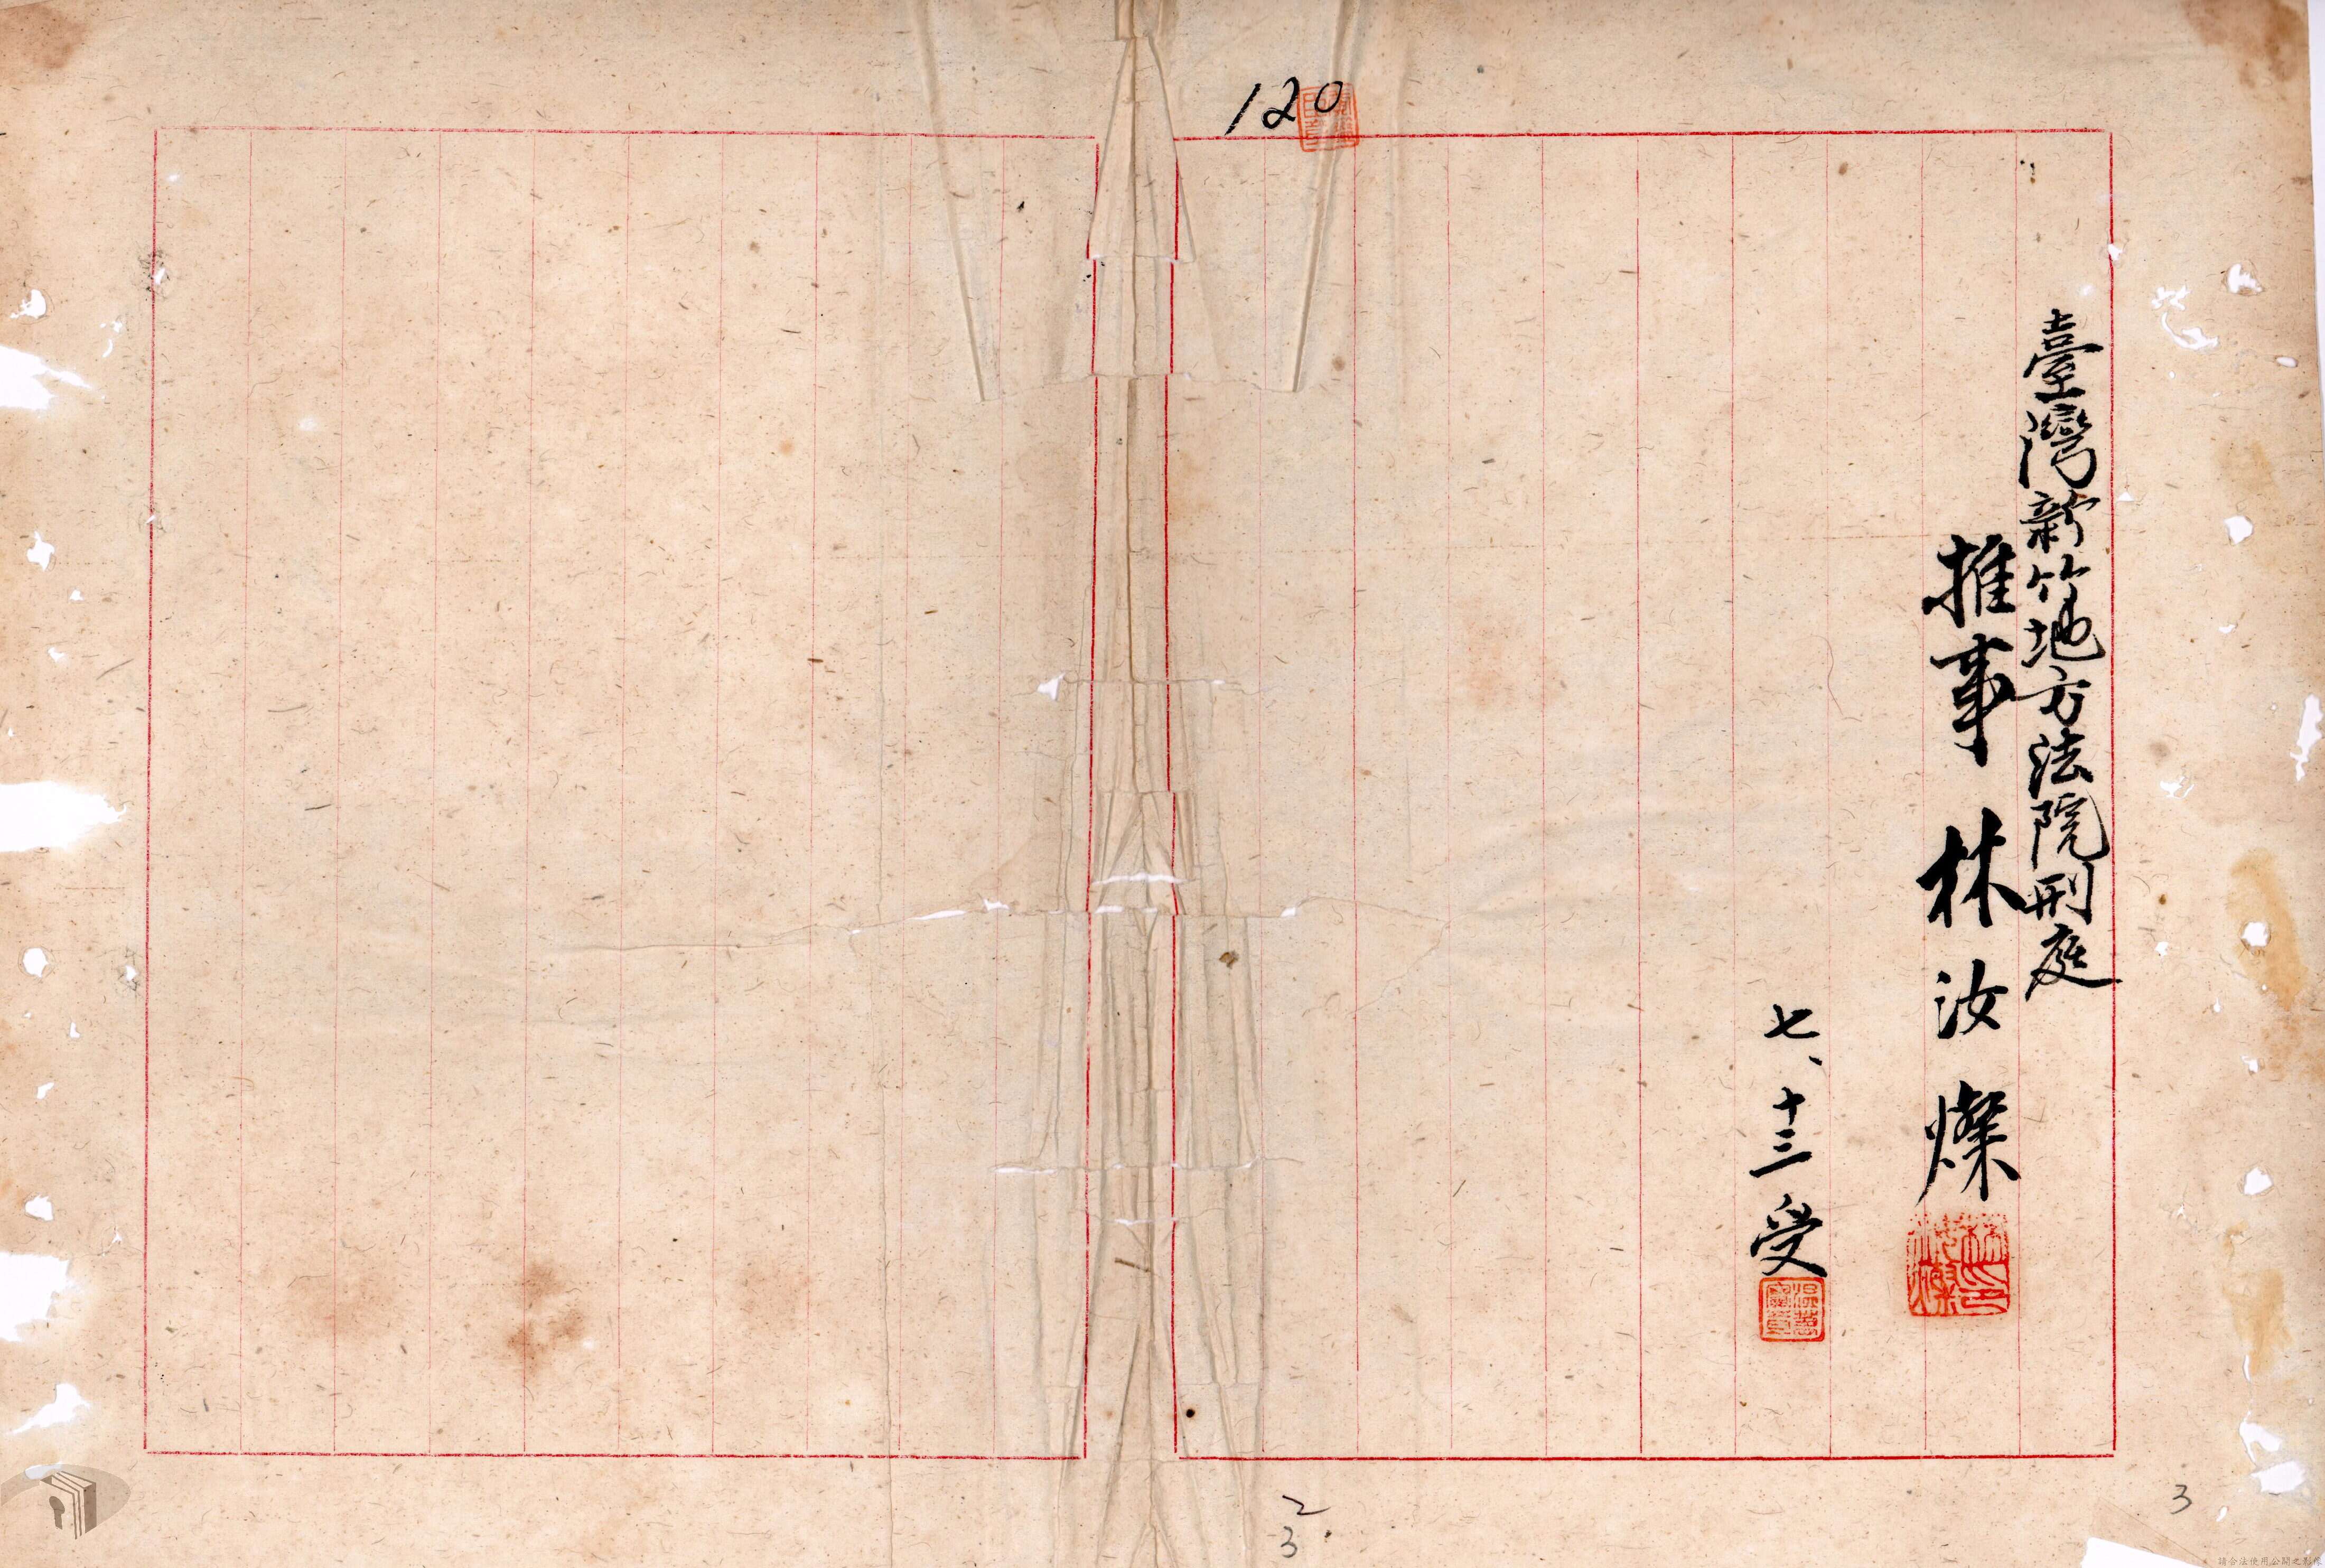 120
臺灣新竹地方法院刑庭
推事 林汝燦
七、十三受
2
3
3
請合法使用公開之影像